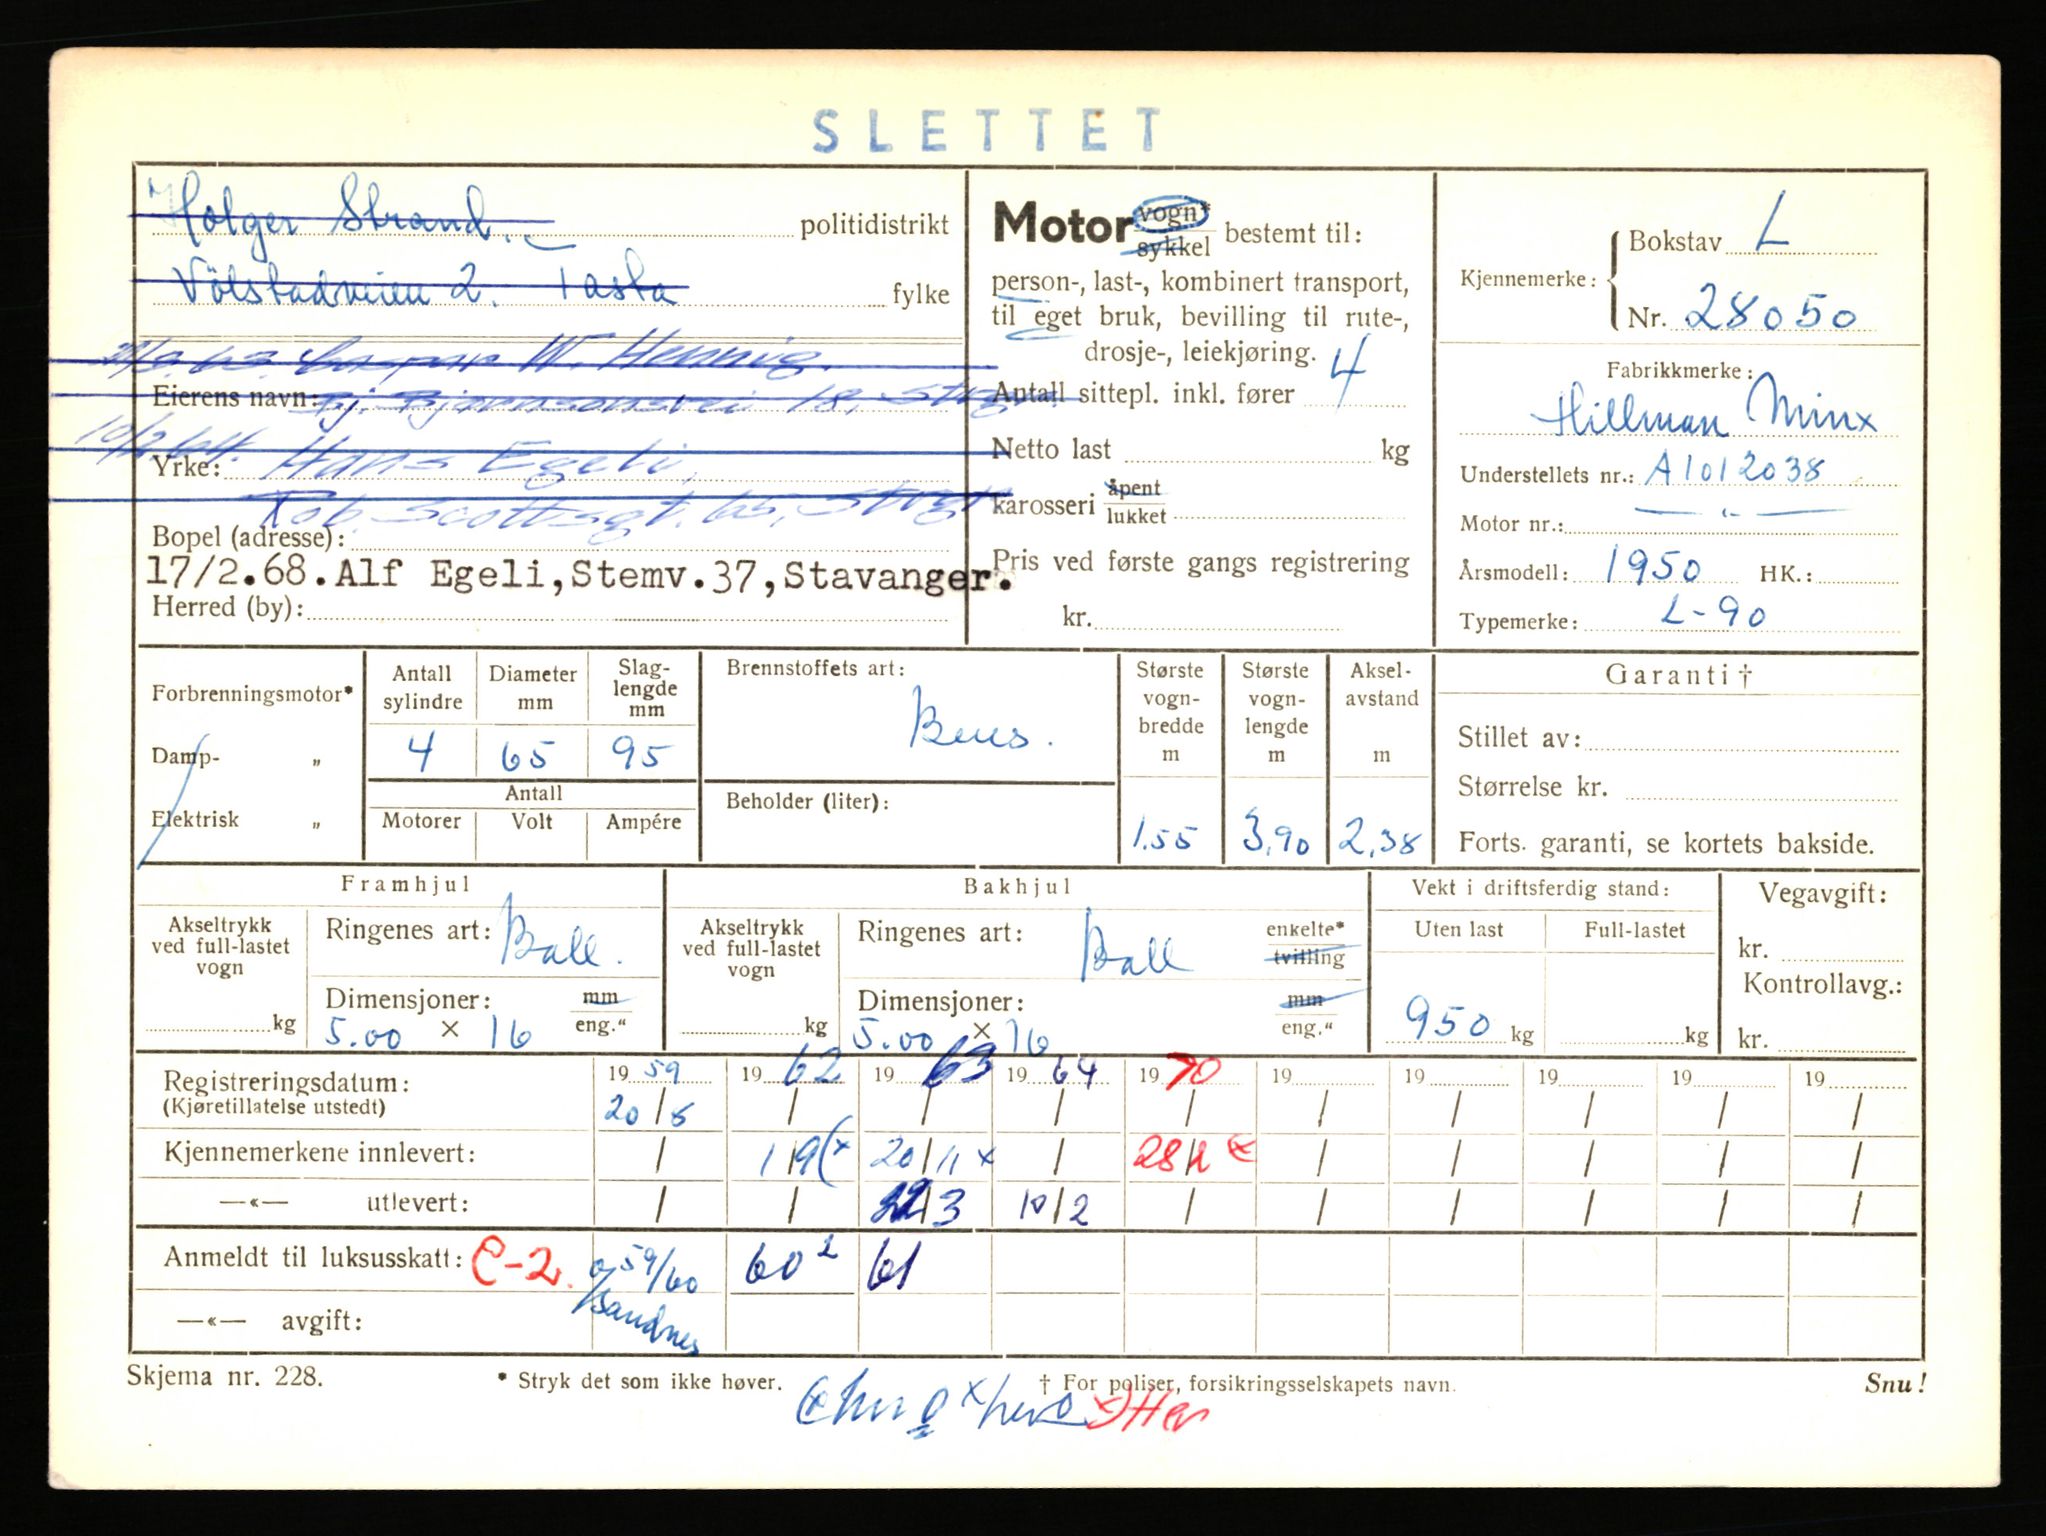 SLETTET
Holger Strand. politidistrikt
Völstadveien 2. Tasta fylke
W. Hennig.
Eierens navn: Bj. Bjørnsonsvei 18, Stvgr.
10/2 64. Yrke: Hans Egeli,
Rob. Scottsgt. 65, Stvgr
Bopel (adresse):
17/2.68. Alf Egeli, Stemv. 37, Stavanger.
Herred (by):
Motor vogn* sykkel bestemt til:
person-, last-, kombinert transport,
til eget bruk, bevilling til rute-,
drosje-, leiekjøring.
Antall sittepl. inkl. fører 4
Netto last kg
karosseri åpent lukket
Pris ved første gangs registrering
kr.
Kjennemerke: Bokstav L
Nr. 28050
Fabrikkmerke:
Hillman Minx
Understellets nr.: A1012038
Motor nr.: — " —
Årsmodell: 1950 HK.:
Typemerke: L-90
Forbrenningsmotor*
Damp- „
Elektrisk „
Antall sylindre 4
Diameter mm 65
Slaglengde mm 95
Antall
Motorer Volt Ampére
Brennstoffets art:
Bens.
Beholder (liter):
Største vogn-bredde m 1.55
Største vogn-lengde m 3,90
Aksel-avstand m 2,38
Garanti †
Stillet av:
Størrelse kr.
Forts. garanti, se kortets bakside.
Framhjul
Akseltrykk ved full-lastet vogn kg
Ringenes art: Ball.
Dimensjoner: mm eng."
5.00 × 16
Bakhjul
Akseltrykk ved full-lastet vogn kg
Ringenes art: Ball enkelte* tvilling
Dimensjoner: mm eng."
5.00 × 16
Vekt i driftsferdig stand:
Uten last Full-lastet
950 kg kg
Vegavgift:
kr.
Kontrollavg.:
kr.
Registreringsdatum: 19 59 19 62 19 63 19 64 19 70 19 19 19 19 19
(Kjøretillatelse utstedt) 20/8 / / / / / / / / /
Kjennemerkene innlevert: / 1/9 (x 20/11 x / 28/1 x / / / / /
—«— utlevert: / / /3 10/2 / / / / / /
Anmeldt til luksusskatt: C-2. 59/60 60² 61
—«— avgift: Sandnes
Skjema nr. 228. * Stryk det som ikke høver. † For poliser, forsikringsselskapets navn. Snu!